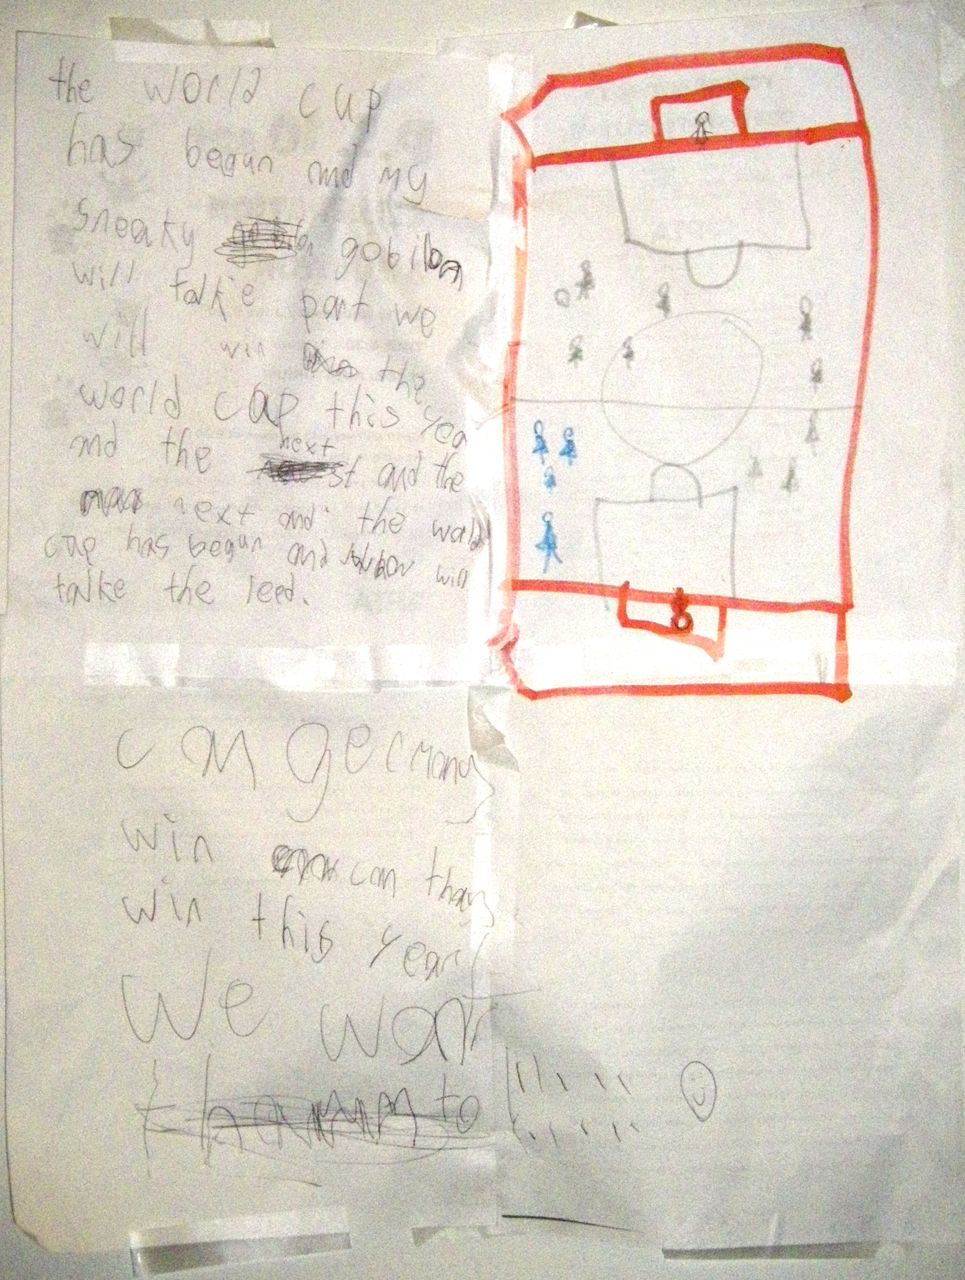 the world cup
has begun and my
sneaky gobilon
will talke part we
will win the
world cap this yea
and the next and the
next and the world
cup has begun and will
talke the leed.
can germany
win can thay
win this year
We wont
to !!!!!!